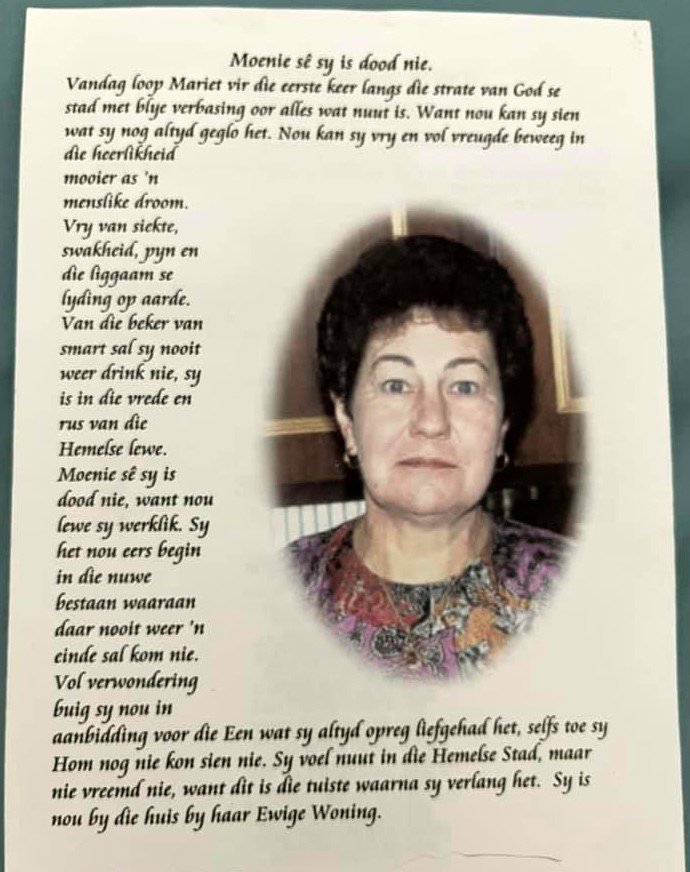 Moenie sê sy is dood nie.
Vandag loop Mariet vir die eerste keer langs die strate van God se
stad met blye verbasing oor alles wat nuut is. Want nou kan sy sien
wat sy nog altyd geglo het. Nou kan sy vry en vol vreugde beweeg in
die heerlikheid
mooier as 'n
menslike droom.
Vry van siekte,
swakheid, pyn en
die liggaam se
lyding op aarde.
Van die beker van
smart sal sy nooit
weer drink nie, sy
is in die vrede en
rus van die
Hemelse lewe.
Moenie sê sy is
dood nie, want nou
lewe sy werklik. Sy
het nou eers begin
in die nuwe
bestaan waaraan
daar nooit weer 'n
einde sal kom nie.
Vol verwondering
buig sy nou in
aanbidding voor die Een wat sy altyd opreg liefgehad het, selfs toe sy
Hom nog nie kon sien nie. Sy voel nuut in die Hemelse Stad, maar
nie vreemd nie, want dit is die tuiste waarna sy verlang het. Sy is
nou by die huis by haar Ewige Woning.